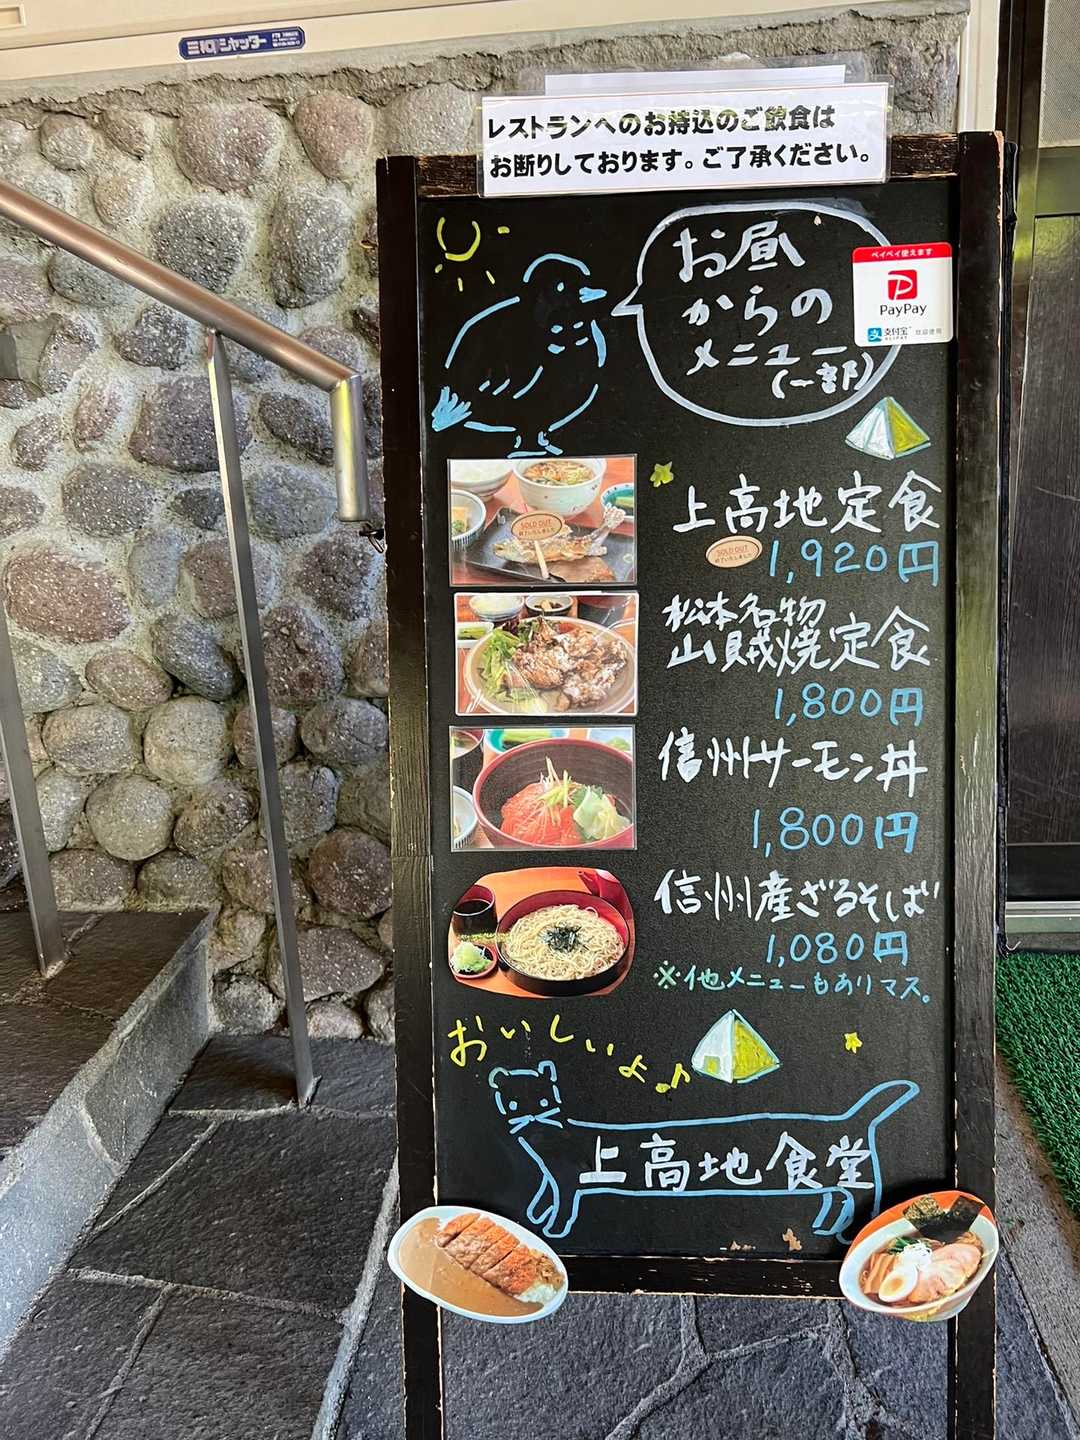 三和シャッター
レストランへのお持込のご飲食は
お断りしております。ご了承ください。
お昼
からの
メニュー
(一部)
ペイペイ使えます
PayPay
支付宝
ALIPAY
欢迎使用
SOLD OUT
終了いたしました
上高地定食
SOLD OUT
終了いたしました
1,920円
松本名物
山賊焼定食
1,800円
信州サーモン丼
1,800円
信州産ざるそば
1,080円
※他メニューもありマス。
おいしいよ♪
上高地食堂